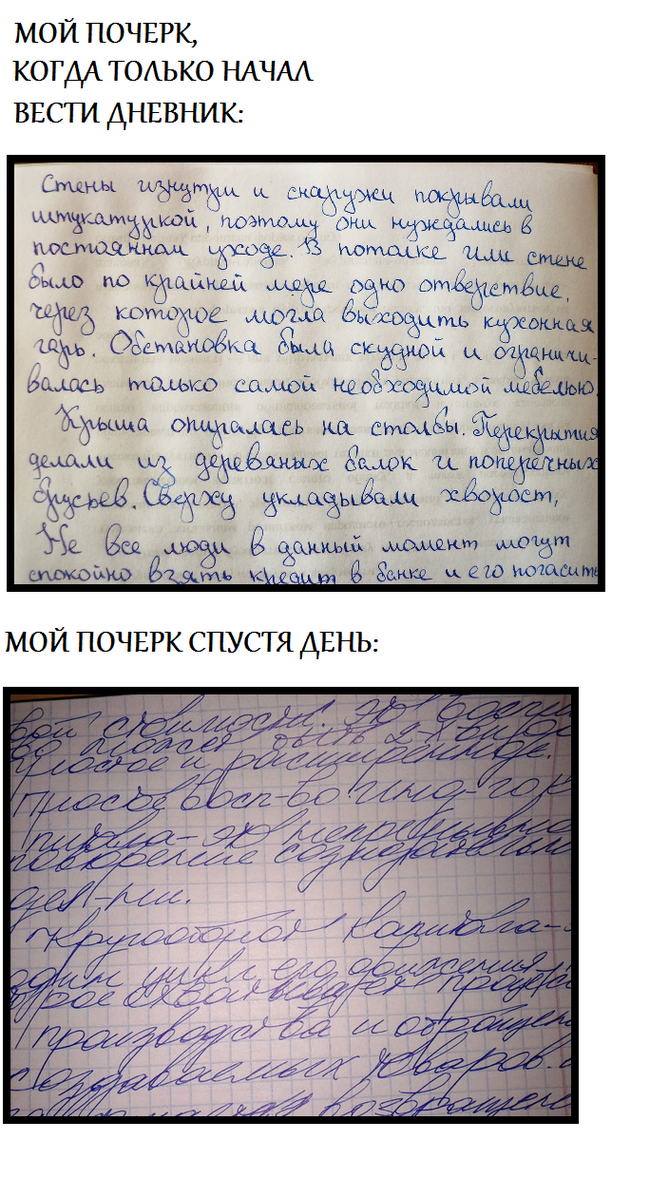 МОЙ ПОЧЕРК,
КОГДА ТОЛЬКО НАЧАЛ
ВЕСТИ ДНЕВНИК:
Стены изнутри и снаружи покрывали
штукатуркой, поэтому они нуждались в
постоянном уходе. В потолке или стене
было по крайней мере одно отверстие,
через которое могла выходить кухонная
гарь. Обстановка была скудной и ограничи-
валась только самой необходимой мебелью.
Крыша опиралась на столбы. Перекрытия
делали из деревяных балок и поперечных
брусьев. Сверху укладывали хворост,
Не все люди в данный момент могут
спокойно взять кредит в банке и его погасить
МОЙ ПОЧЕРК СПУСТЯ ДЕНЬ:
вой стоимости. это
во может быть 2-х видов
простое и расширенное.
Простое восп-во
это непрерывное
повторение
Кругооборот капитала-
один цикл его движения,
производства и
создаваемых товаров.